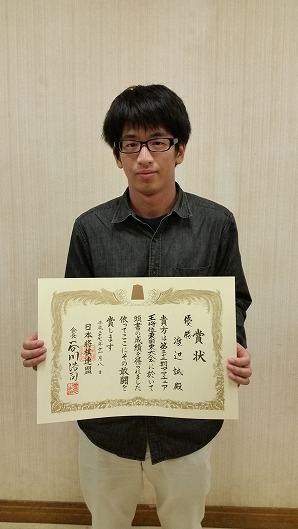 賞状
優勝 渡辺誠殿
貴方は第三十一回アマチュア
王将位東日本大会に於いて
頭書の成績を得られました
依ってここにその敢闘を
賞します
平成二十七年十一月八日
日本将棋連盟
会長 谷川浩司